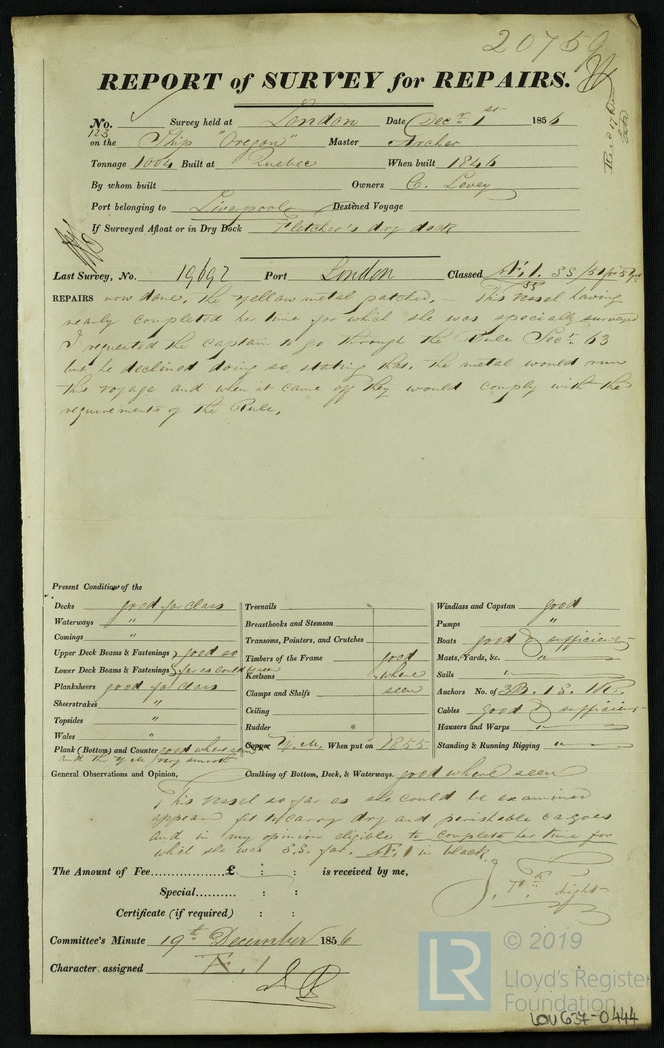 20759
REPORT of SURVEY for REPAIRS.
No. 123 Survey held at London Date Decr 1st 1856
on the Ship "Oregon" Master Archer
Tonnage 1004 Built at Quebec When built 1846
By whom built Owners C. Levey
Port belonging to Liverpool Destined Voyage
If Surveyed Afloat or in Dry Dock Fletcher's dry dock
Last Survey, No. 19692 Port London Classed
REPAIRS now done, the yellow metal patched. - This vessel having
nearly completed her time for which she was specially surveyed
I requested the captain to go through the Rule Secn 63
but he declined doing so, stating that the metal would run
this voyage and when it came off they would comply with the
requirements of the Rule.
Present Condition of the
Decks good for class
Waterways "
Comings "
Upper Deck Beams & Fastenings } good so
Lower Deck Beams & Fastenings } far as could be seen
Planksheers good for class
Sheerstrakes "
Topsides "
Wales "
Plank (Bottom) and Counter good where seen
and the Y M very smooth
Treenails
Breasthooks and Stemson
Transoms, Pointers, and Crutches
Timbers of the Frame good
Keelsons where
Clamps and Shelfs seen
Ceiling
Rudder
Copper Y.M. When put on 1855
Windlass and Capstan good
Pumps "
Boats good & sufficient
Masts, Yards, &c. "
Sails "
Anchors No. of 3B. 1S. 1K.
Cables good & sufficient
Hawsers and Warps "
Standing & Running Rigging "
General Observations and Opinion, Caulking of Bottom, Deck, & Waterways. good where seen
This vessel so far as she could be examined
appears fit to carry dry and perishable cargoes
and in my opinion eligible to complete her time for
which she was S.S. for. Æ 1 in black
The Amount of Fee..............£ : : is received by me,
Special.......... : :
Certificate (if required) : :
Light
Committee's Minute 19th December 1856
Character assigned Æ. 1
LR © 2019
Lloyd's Register
Foundation
LON637-0444